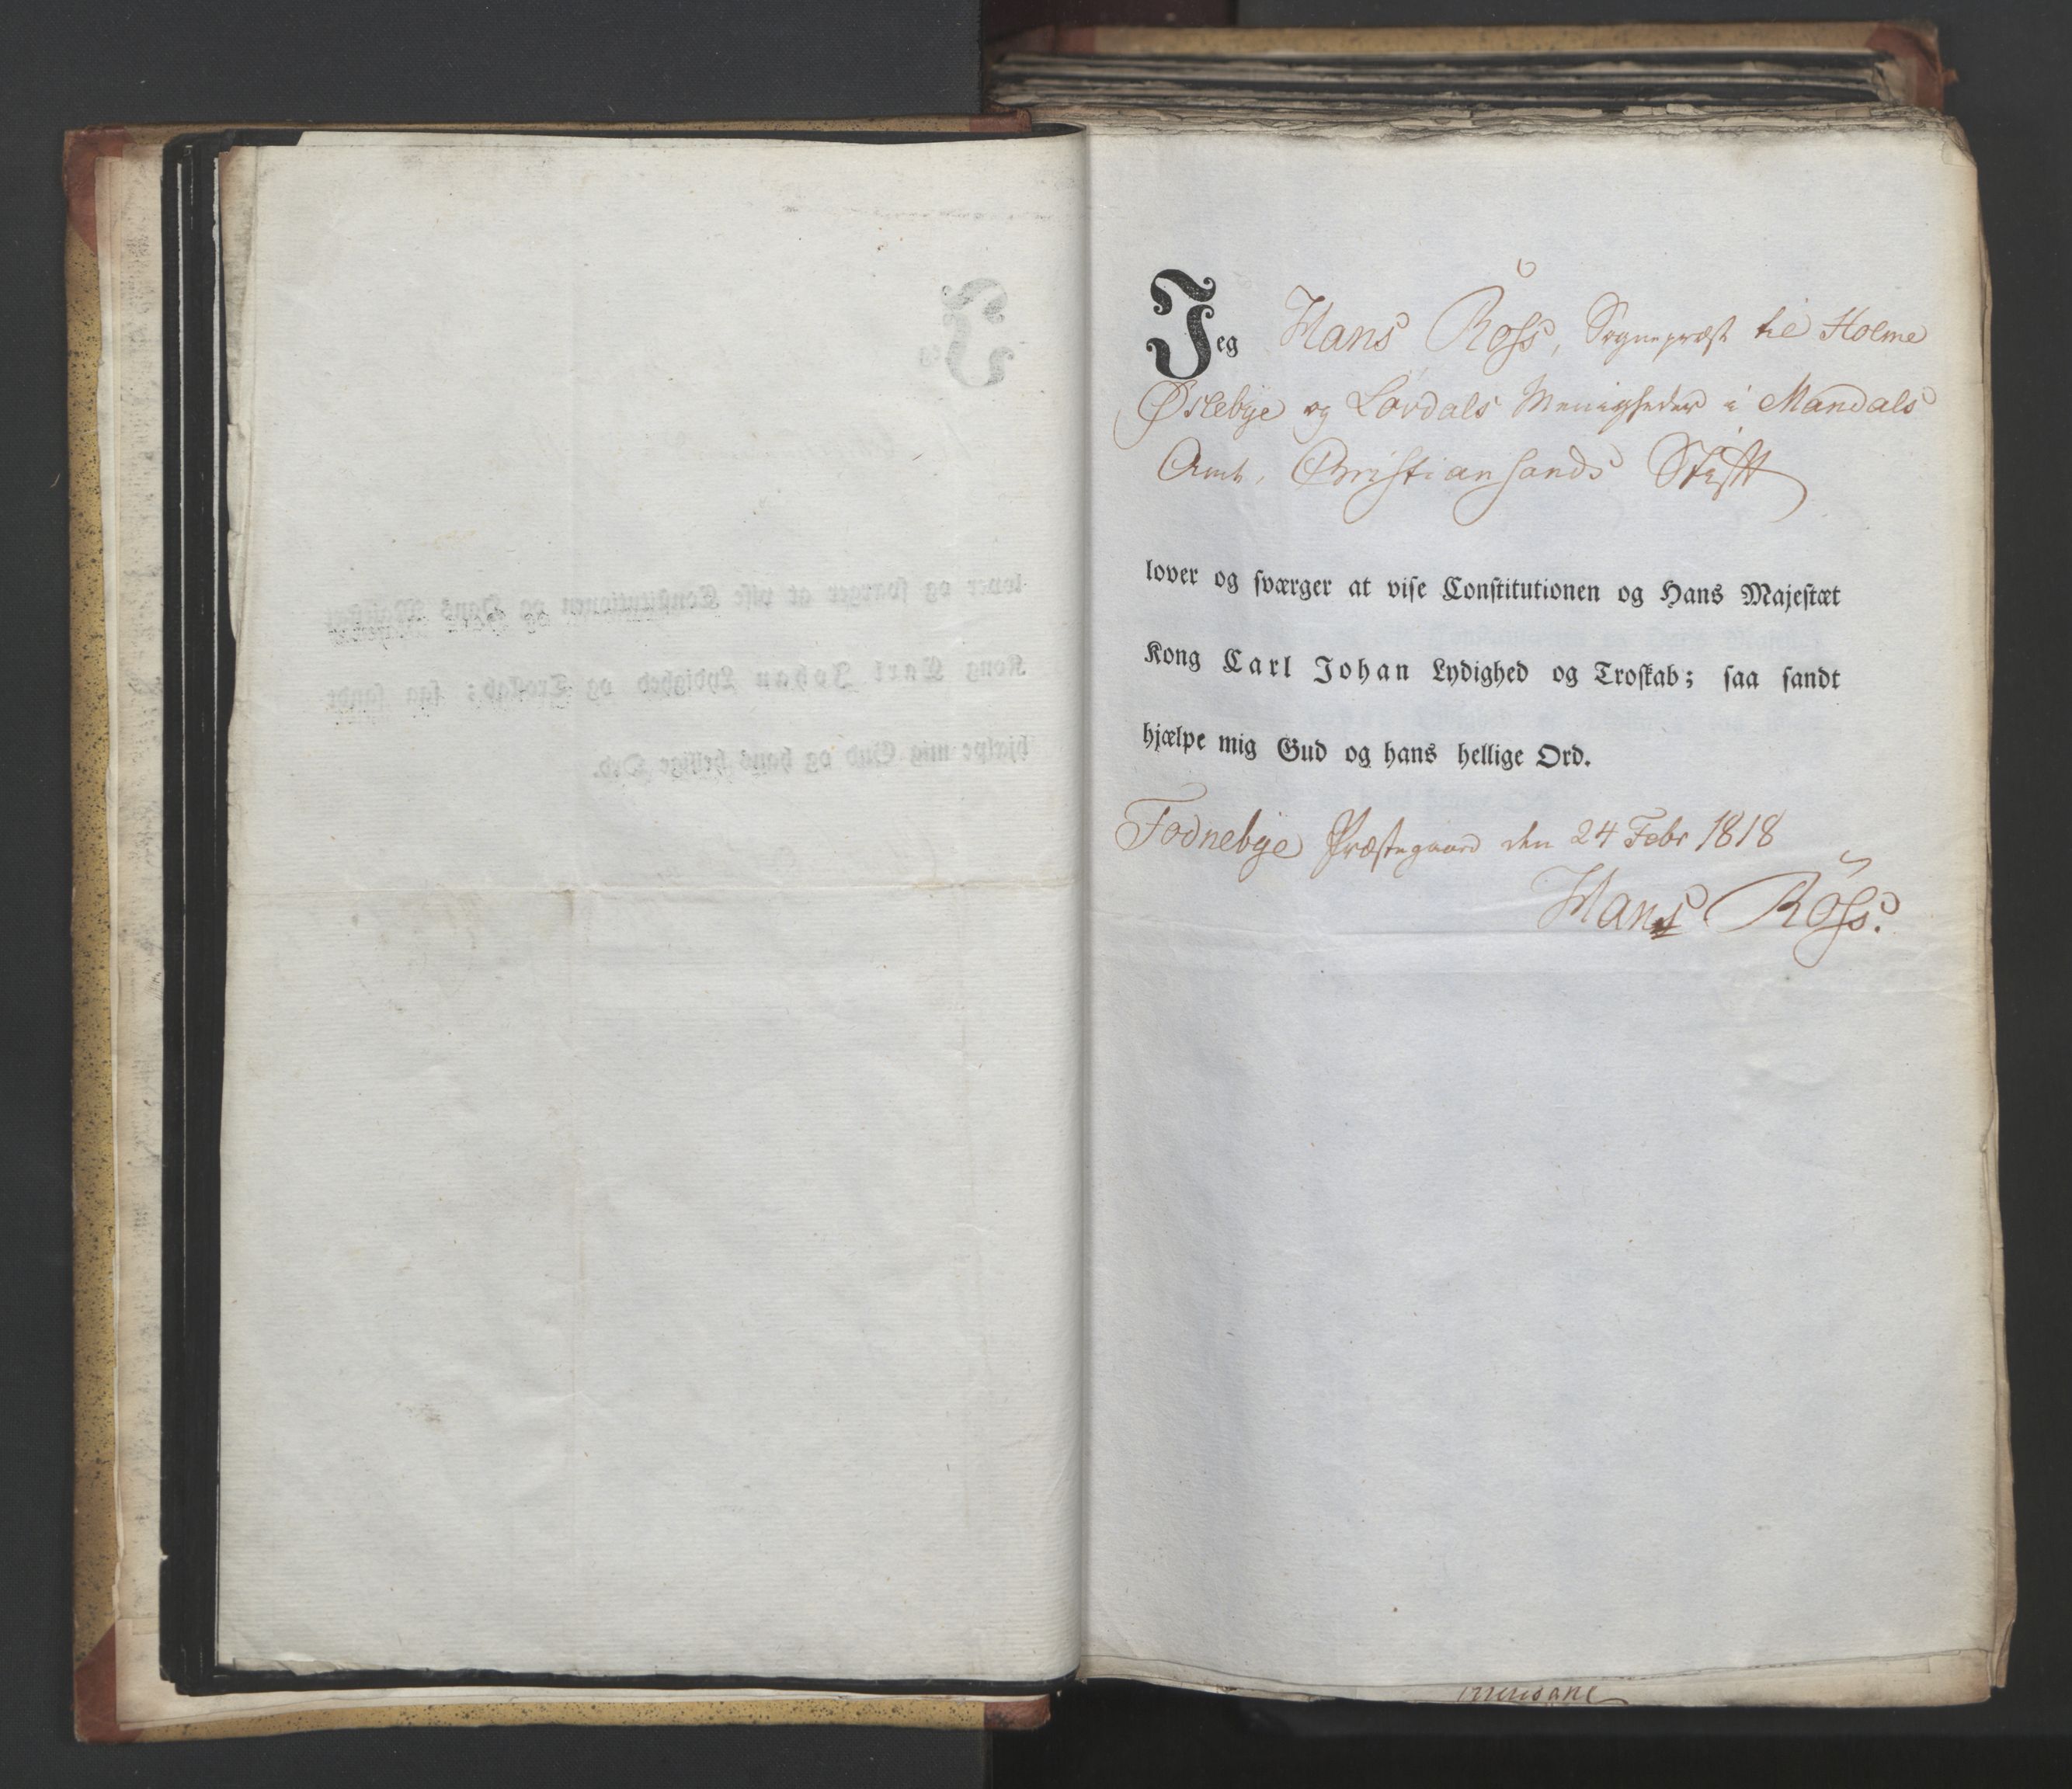 Jeg Hans Röss, Sognepræst til Holme
Øslebye og Lavdals Menigheder i Mandals
Amt, Christiansands Stift
lover og sværger at vise Constitutionen og Hans Majestæt
Kong Carl Johan Lydighed og Troskab; saa sandt
hjælpe mig Gud og hans hellige Ord.
Fodnebye Præstegaard den 24 Febr 1818
Hans Röss.